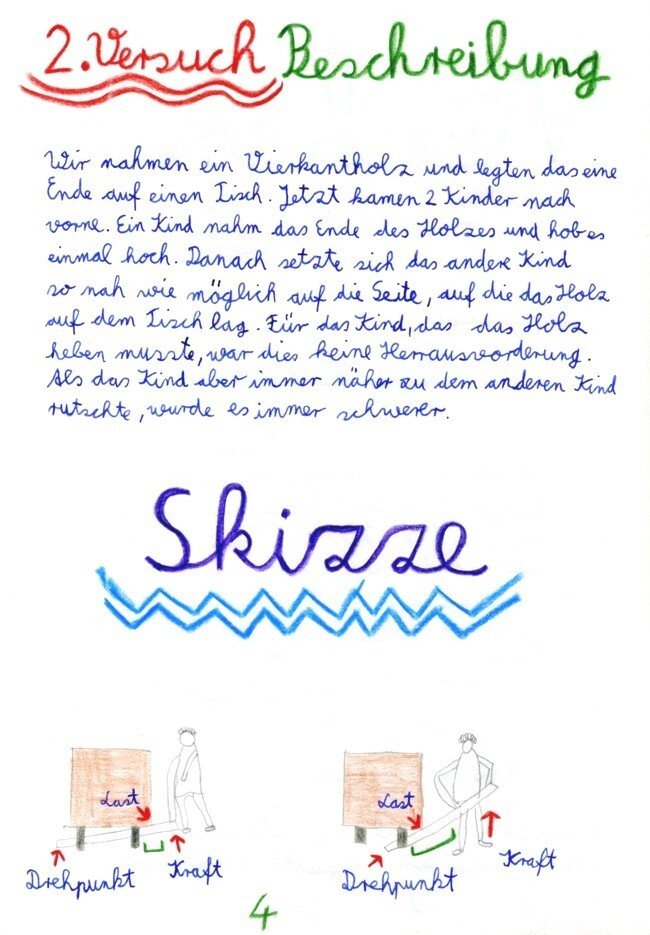 2. Versuch Beschreibung
Wir nahmen ein Vierkantholz und legten das eine
Ende auf einen Tisch. Jetzt kamen 2 Kinder nach
vorne. Ein Kind nahm das Ende des Holzes und hob es
einmal hoch. Danach setzte sich das andere Kind
so nah wie möglich auf die Seite, auf die das Holz
auf dem Tisch lag. Für das Kind, das das Holz
heben musste, war dies keine Herrausvorderung.
Als das Kind aber immer näher zu dem anderen Kind
rutschte, wurde es immer schwerer.
Skizze
Last
Drehpunkt
Kraft
Last
Drehpunkt
Kraft
4